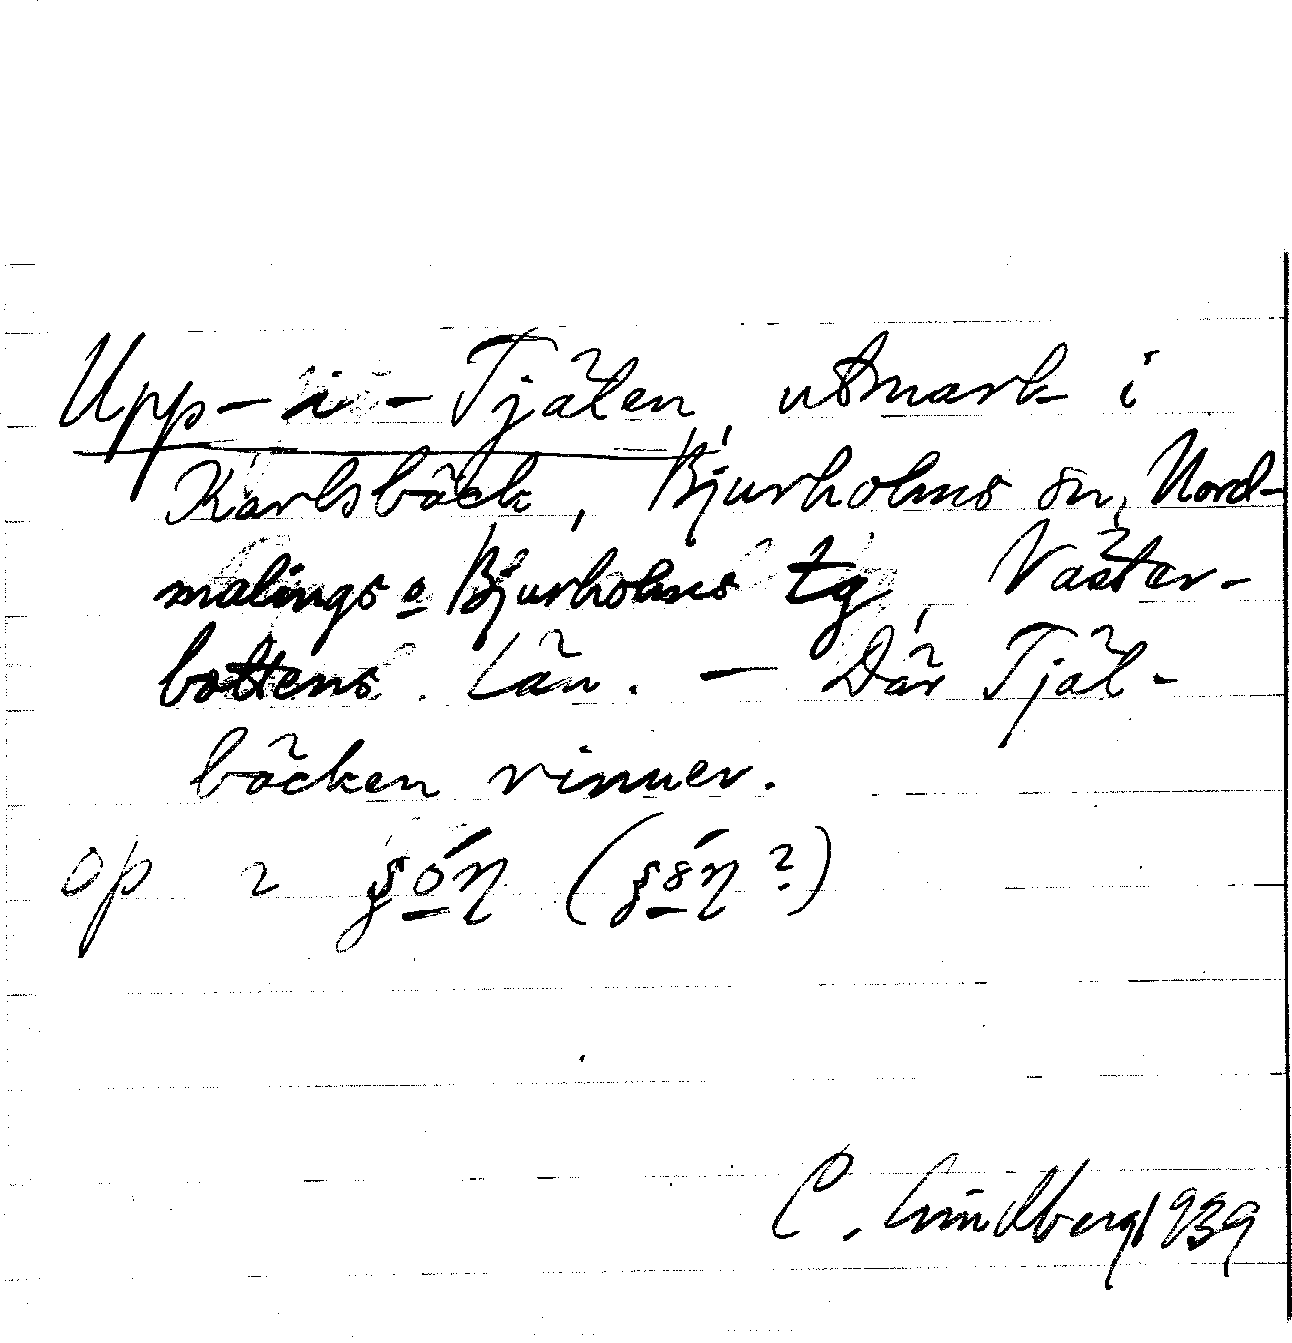 Upp-i-Tjälen, utmark i
Karlsbäck, Bjurholms sn, Nord-
malings o Bjurholms tg, Väster-
bottens. Län. — Där Tjäl-
bäcken rinner.
op
C. Lindberg 1939